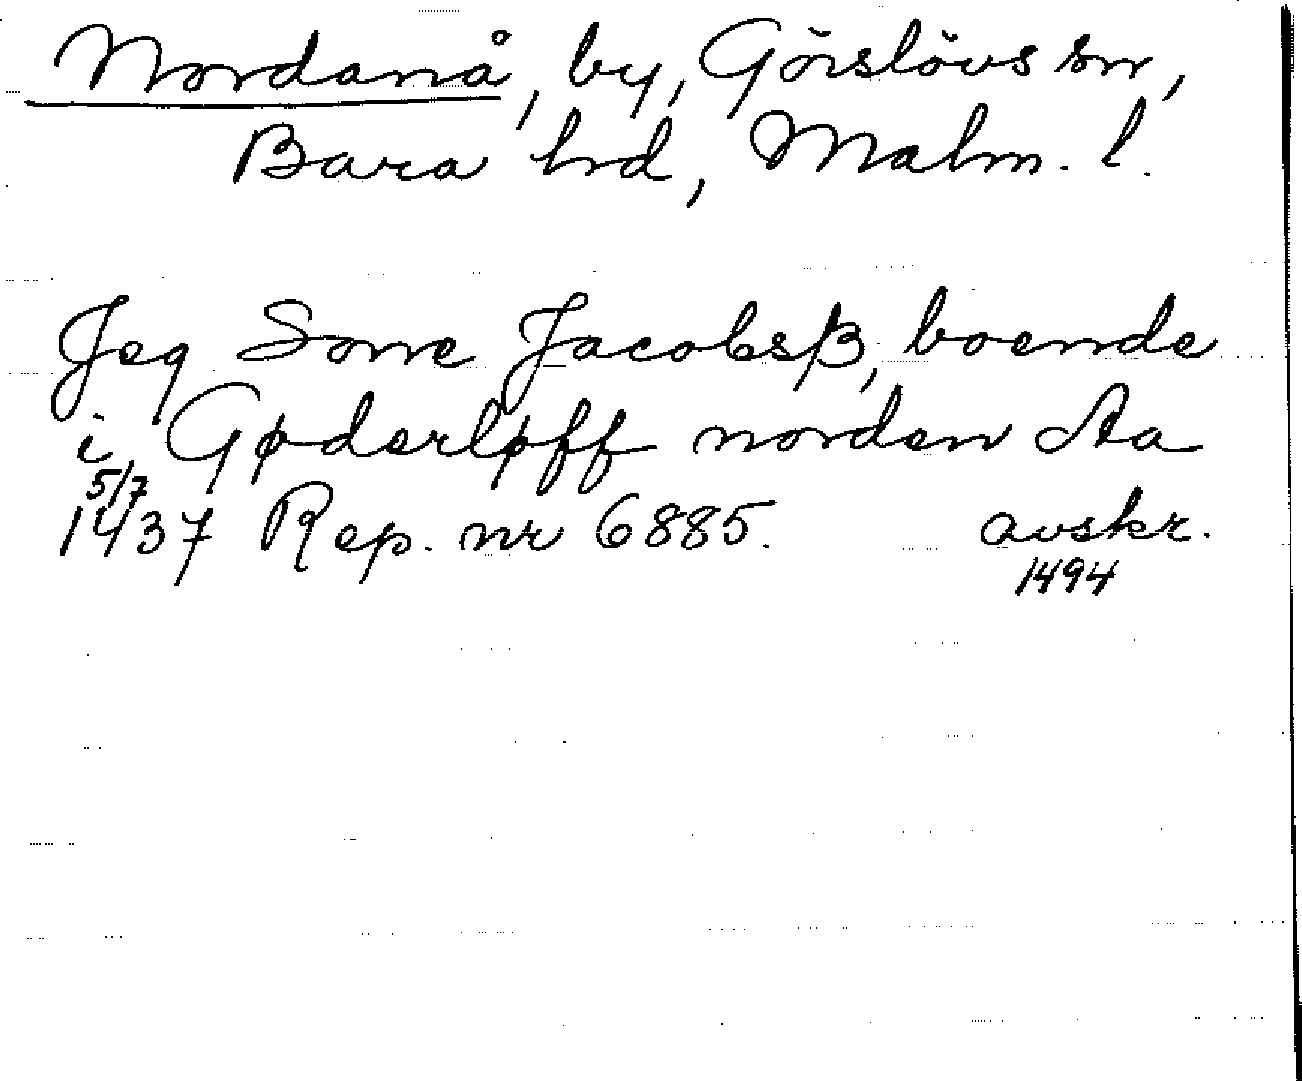 Nordanå, by, Görslövs sn,
Bara hd, Malm. l.
Jeg Sonne Jacobsß, boende
i Gøderløff norden Aa
5/7
1437 Rep. nr 6885. avskr.
1494